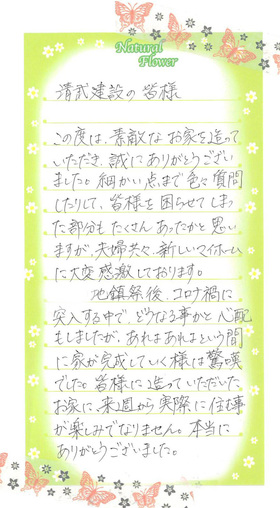 Natural
Flower
清武建設の皆様
この度は、素敵なお家を造って
いただき、誠にありがとうござい
ました。細かい点まで色々質問
したりして、皆様を困らせてしまっ
た部分もたくさんあったかと思い
ますが、夫婦共々、新しいマイホーム
に大変感激しております。
地鎮祭後、コロナ禍に
突入する中で、どうなる事かと心配
もしましたが、あれよあれよという間
に家が完成していく様は驚嘆
でした。皆様に造っていただいた
お家に、来週から実際に住む事
が楽しみでなりません。本当に
ありがとうございました。